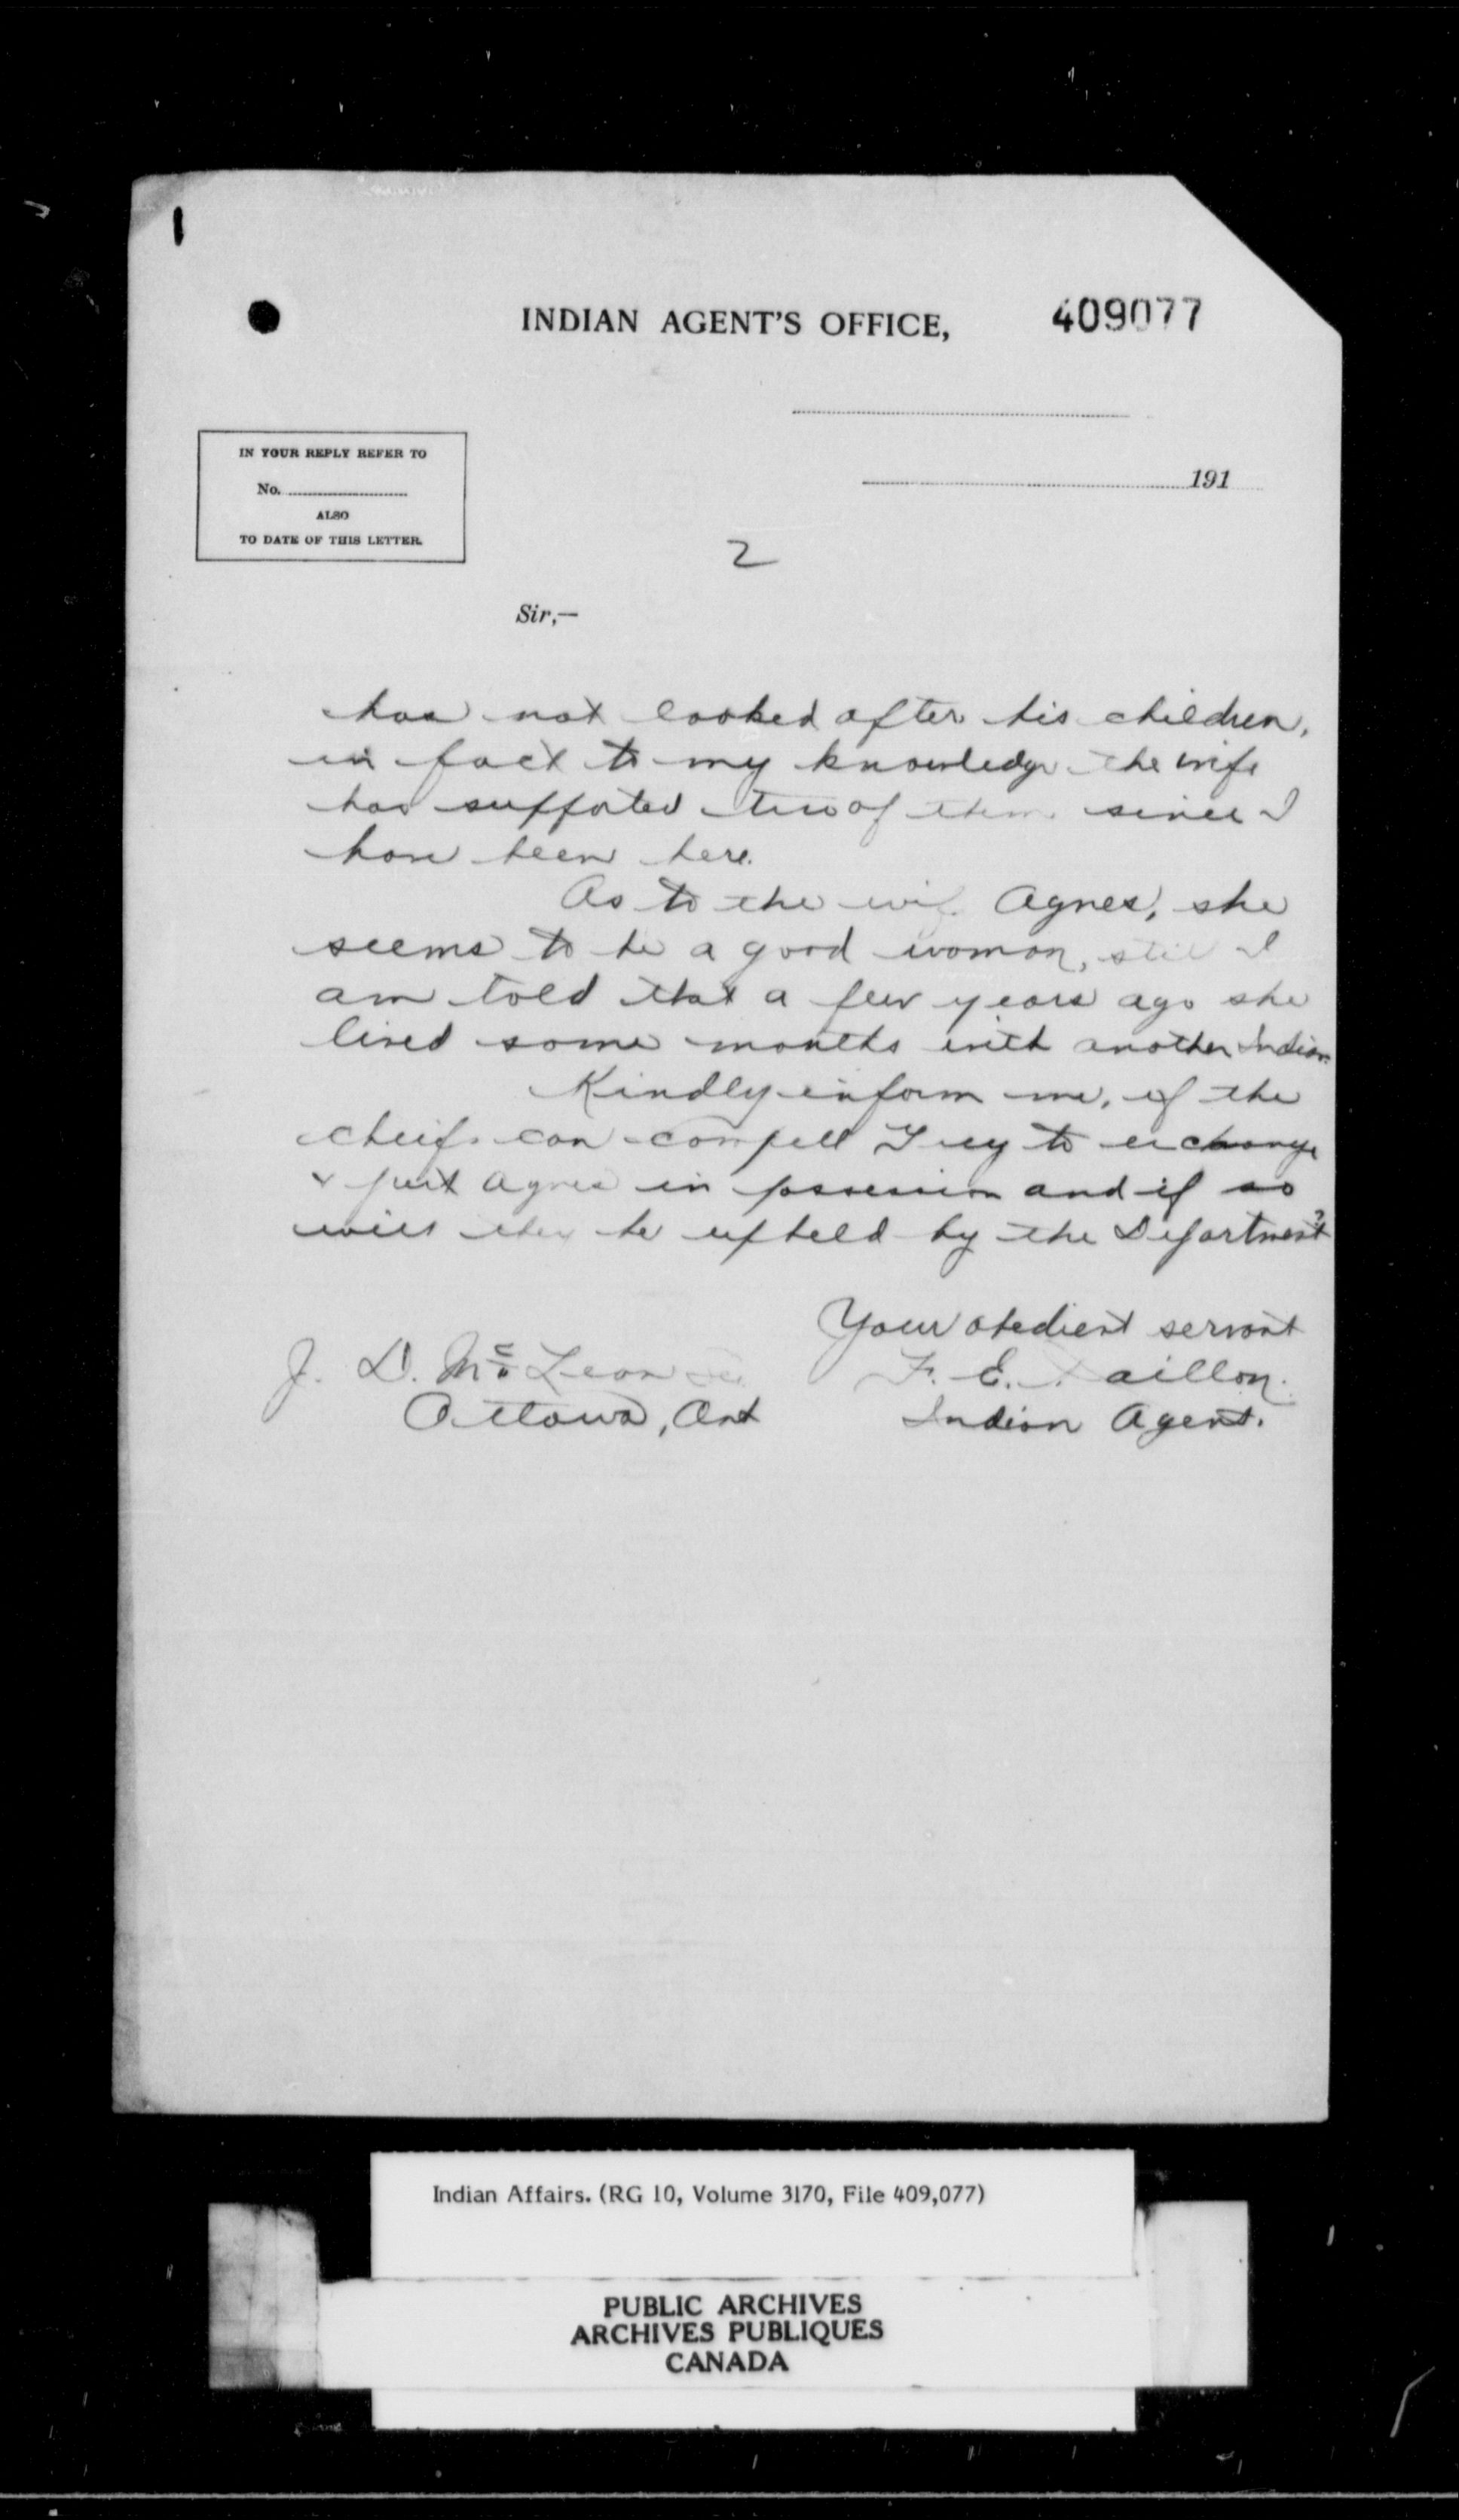 INDIAN AGENT'S OFFICE, 409077
191
IN YOUR REPLY REFER TO
No.
ALSO
TO DATE OF THIS LETTER.
2
Sir,—
has not looked after his children,
in fact to my knowledge the wife
has supported two of them since I
have been here.
As to the wife Agnes, she
seems to be a good woman, still I
am told that a few years ago she
lived some months with another Indian.
Kindly inform me, if the
cheifs can compell to exchange
& put Agnes in possession and if so
will they be upheld by the Department?
Your obedient servant
J. D. McLean
F. E. aillon.
Ottawa, Ont
Indian Agent.
Indian Affairs. (RG 10, Volume 3170, File 409,077)
PUBLIC ARCHIVES
ARCHIVES PUBLIQUES
CANADA